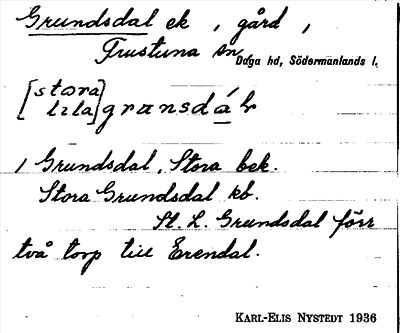 Grundsdal ek, gård,
Trustuna sn Daga hd, Södermanlands l.
[stora
lıla] gransdáḷ
/ Grundsdal, Stora bek.
Stora Grundsdal kb.
St. L. Grundsdal förr
två torp till Erendal.
KARL-ELIS NYSTEDT 1936